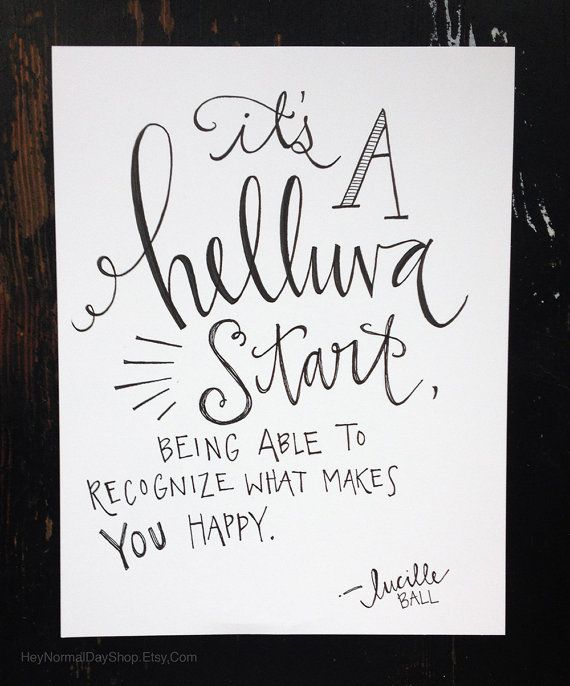 it's A
helluva
Start,
BEING ABLE TO
RECOGNIZE WHAT MAKES
YOU HAPPY.
- lucille
BALL
HeyNormalDayShop.Etsy.Com